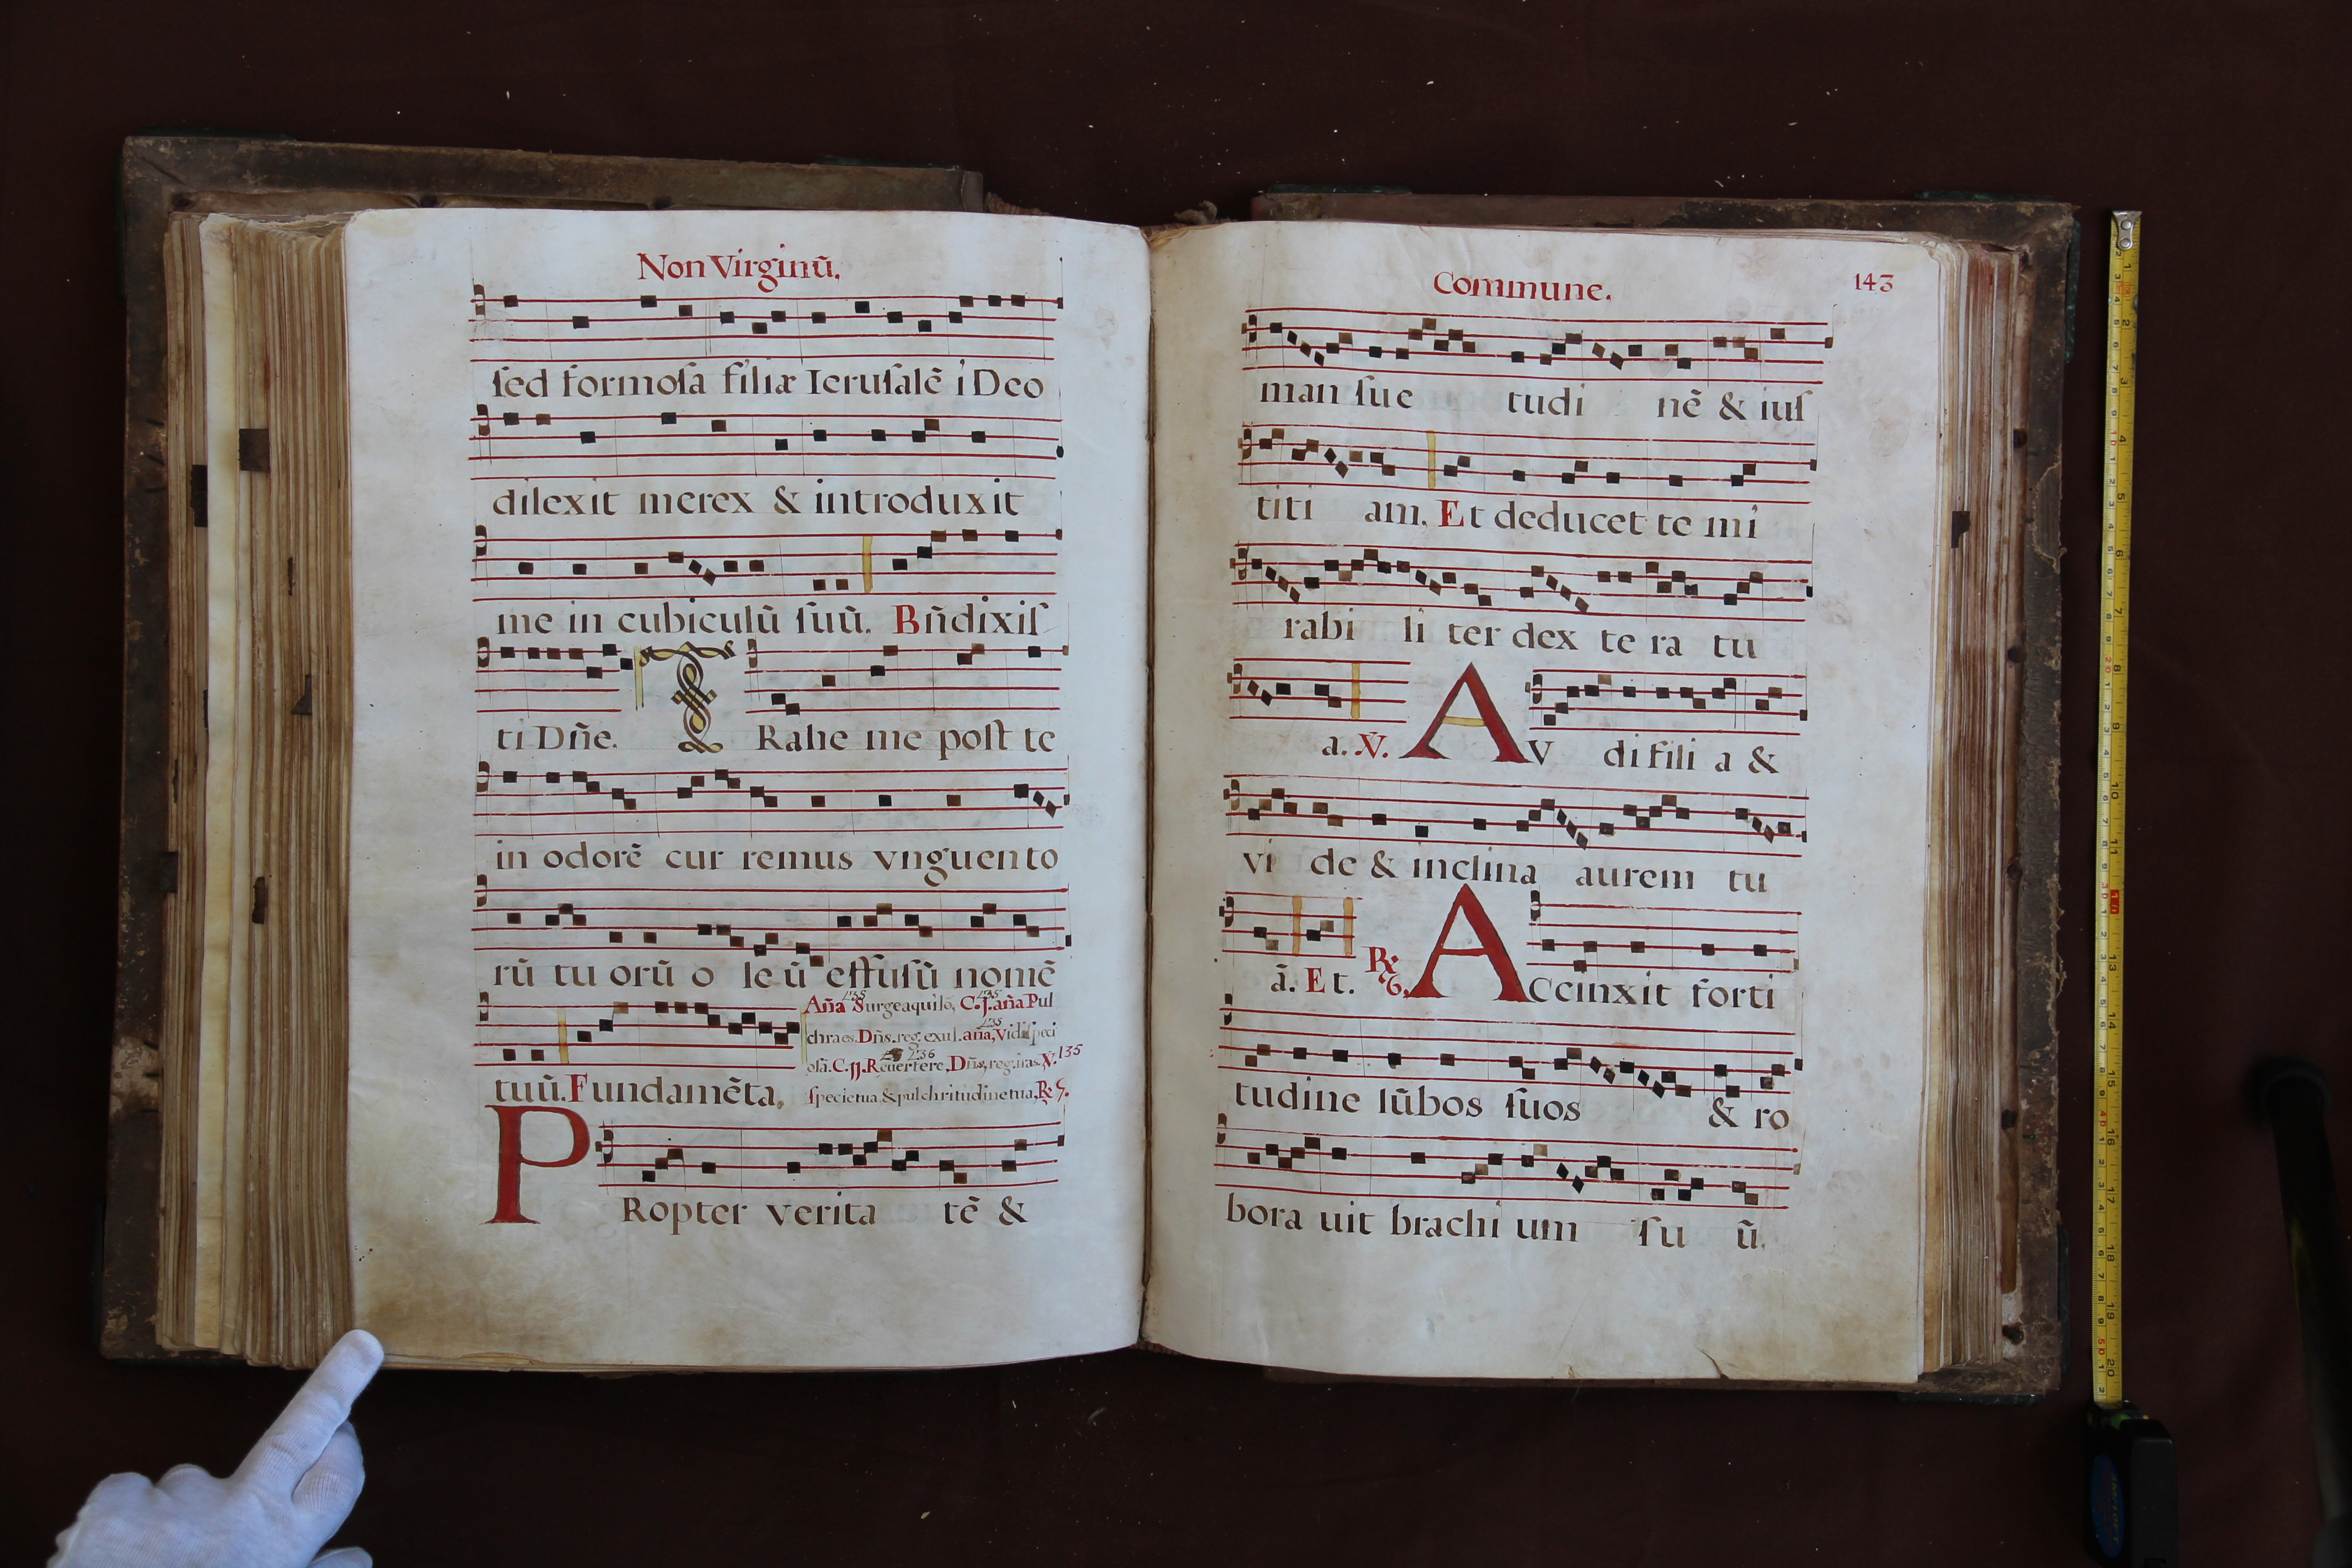 Non Virginū.
ſed formoſa filiæ Ieruſalē i Deo
dilexit me rex & introduxit
me in cubiculū ſuū. Bn̄dixiſ
ti Dn̄e. TRahe me poſt te
in odorē cur remus vnguento
rū tu orū o le ū effuſū nomē
tuū. Fundamēta.
An̄a Surge aquilo, C.j. an̄a Pul
chra es. Dn̄s. reg. exul. an̄a, Vidi ſpeci
oſā. C.jj. Reuertere, Dn̄s, reg. iras. V. 135
ſpecie tua. & pulchritudine tua, R 7.
PRopter verita tē &
Commune.
143
man ſue tudi nē & iuſ
titi am. Et deducet te mi
rabi li ter dex te ra tu
a. V. AV di fili a &
vi de & inclina aurem tu
ā. Et. R 6. ACcinxit forti
tudine lūbos ſuos & ro
bora uit brachi um ſu ū.